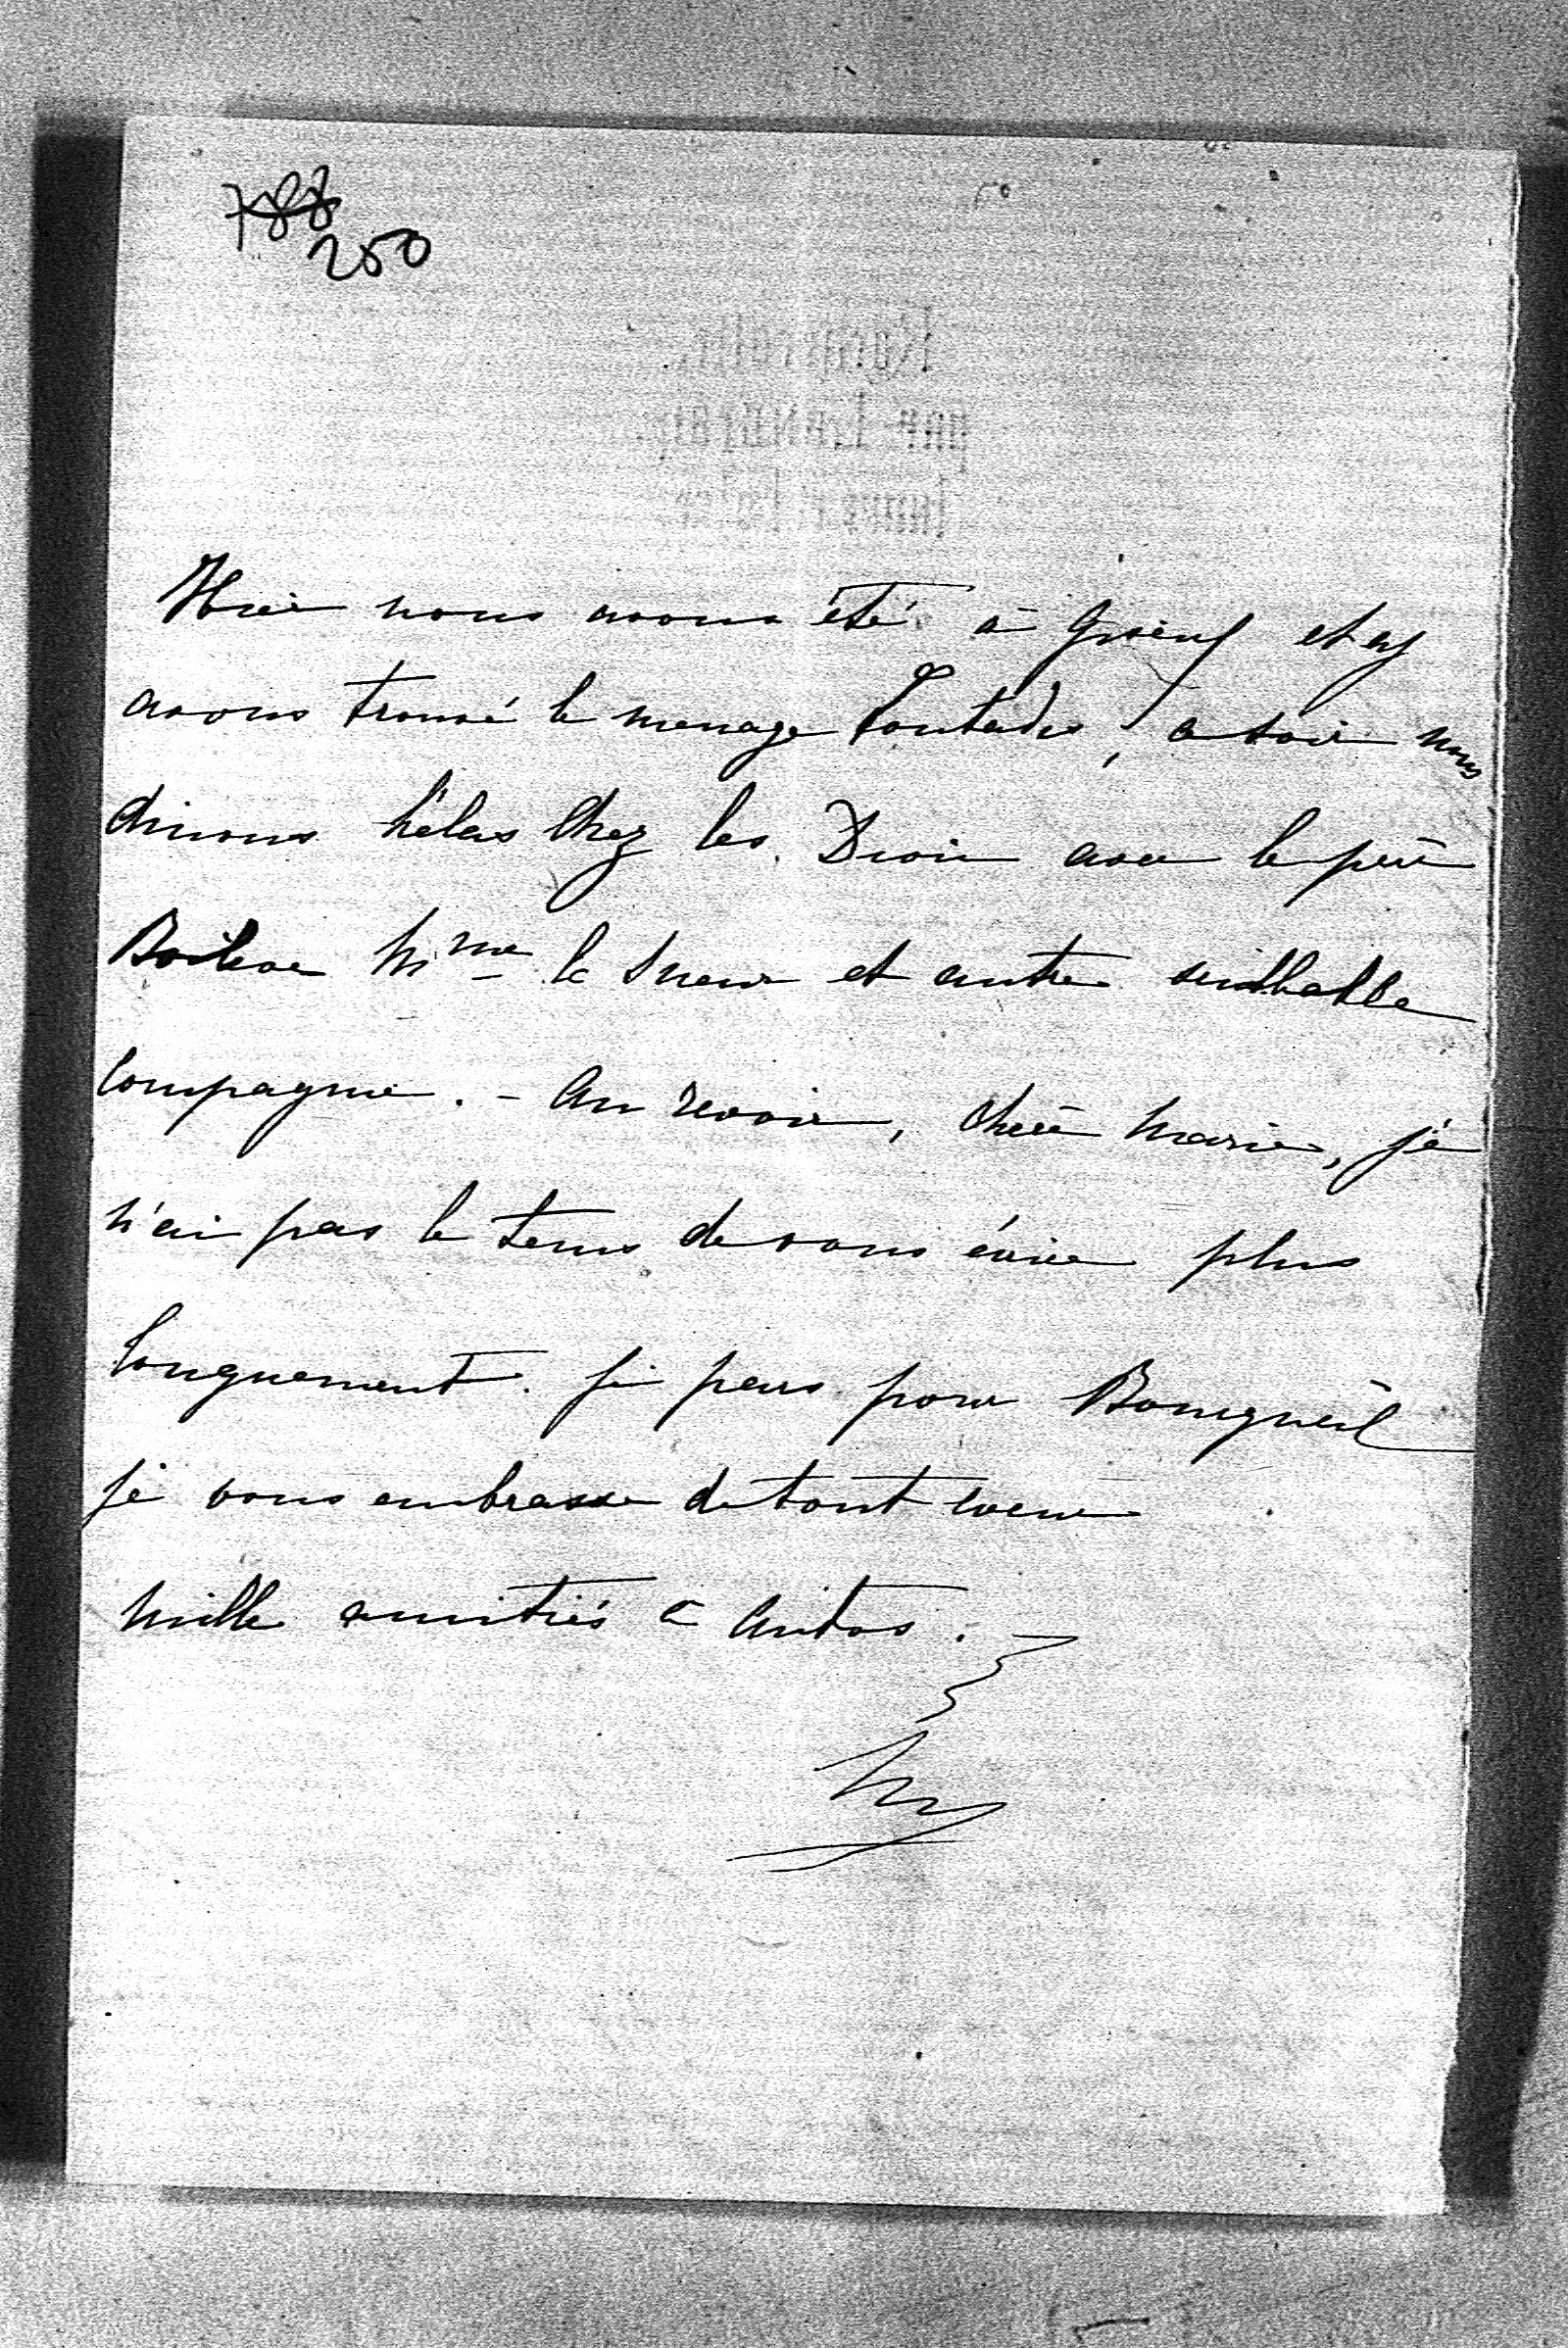 788
250
Hier nous avons été à et y
avons trouvé le menage Pontadis, ce soir nous
dinons hélas chez les Droin avec le père
Boileve Mme le Sueur et autre semblable
compagnie. - Au revoir, chère Marie, je
n'ai pas le tems de vous écrire plus
longuement. Je pars pour Bourgueil
je vous embrasse de tout coeur
Mille amitiés à Antos.